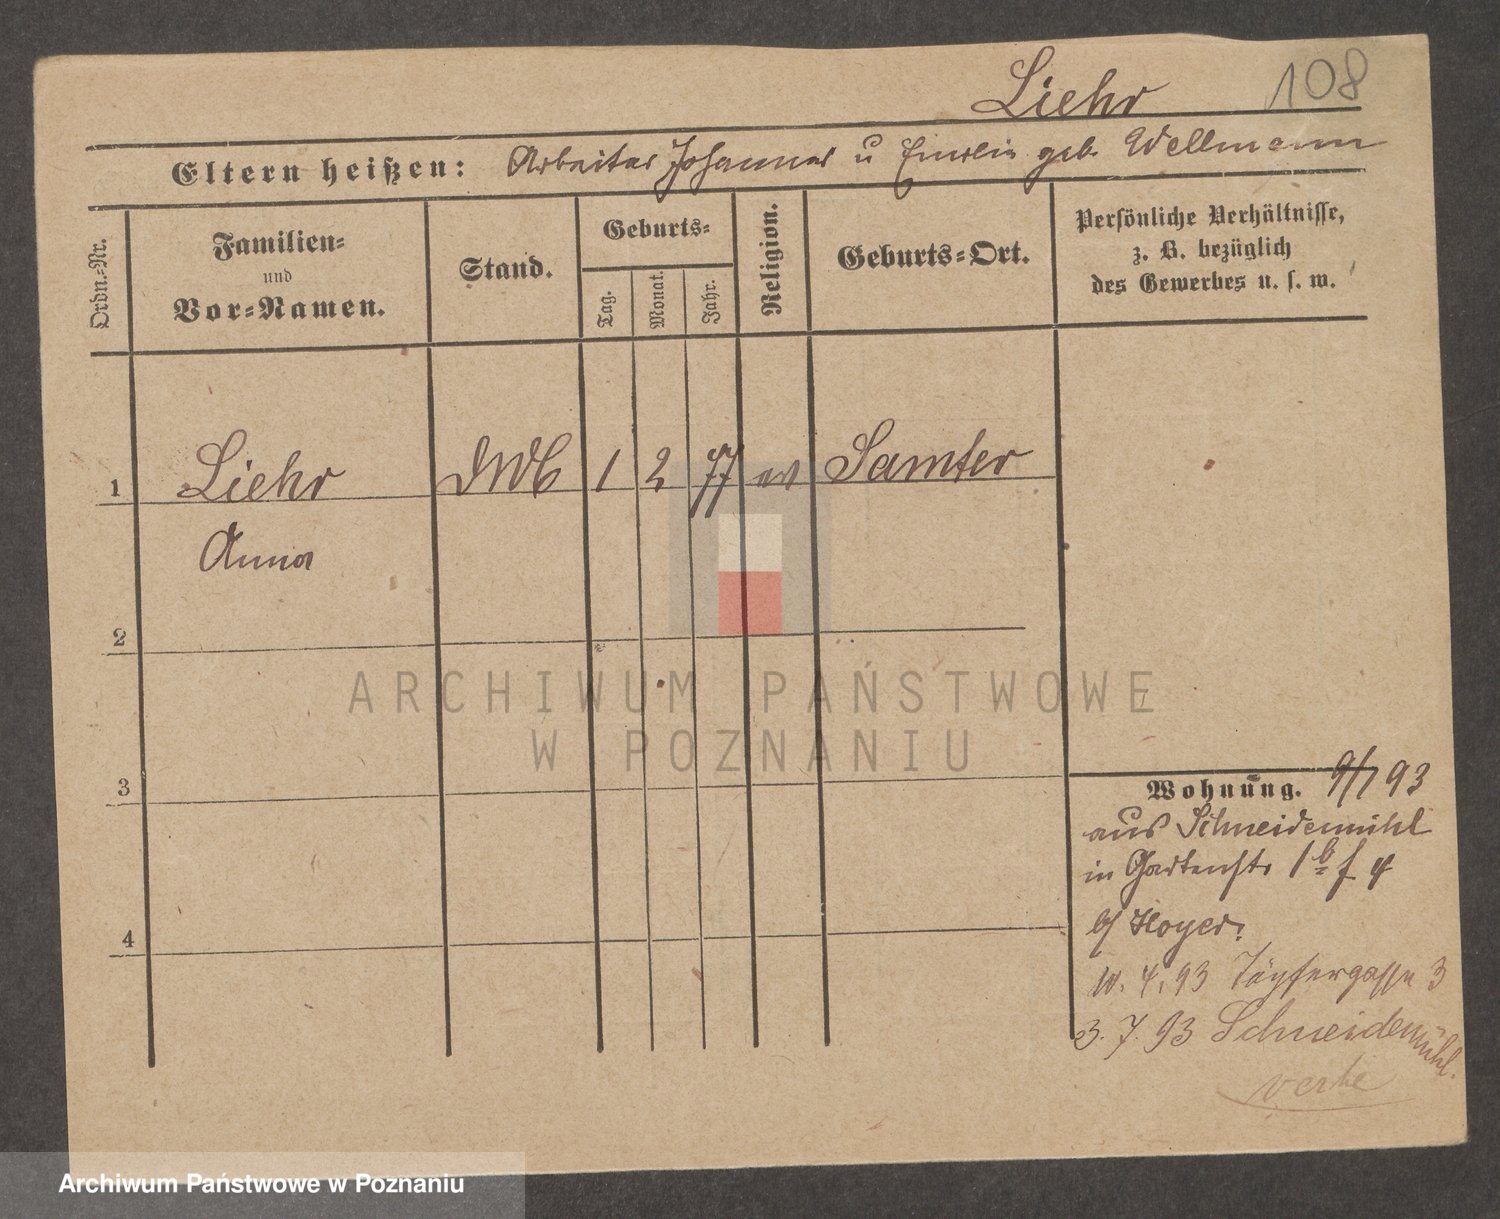 Liehr 108
Eltern heißen: Arbeiter Johannes u Emilie geb. Wellmann
Ordn.-Nr.
Familien-
und
Vor-Namen.
Stand.
Geburts-
Tag.
Monat.
Jahr.
Religion.
Geburts-Ort.
Persönliche Verhältnisse,
z. B. bezüglich
des Gewerbes u. s. w.
1 Liehr 1 2 77 ev Samter
Anna
2
ARCHIWUM PAŃSTWOWE
W POZNANIU
3
Wohnung. 9/1 93
aus Schneidemühl
in Gartenstr 1b
b/ Hoyer.
10. 4. 93 Töpfergasse 3
4
3. 7. 93 Schneidemühl.
Archiwum Państwowe w Poznaniu